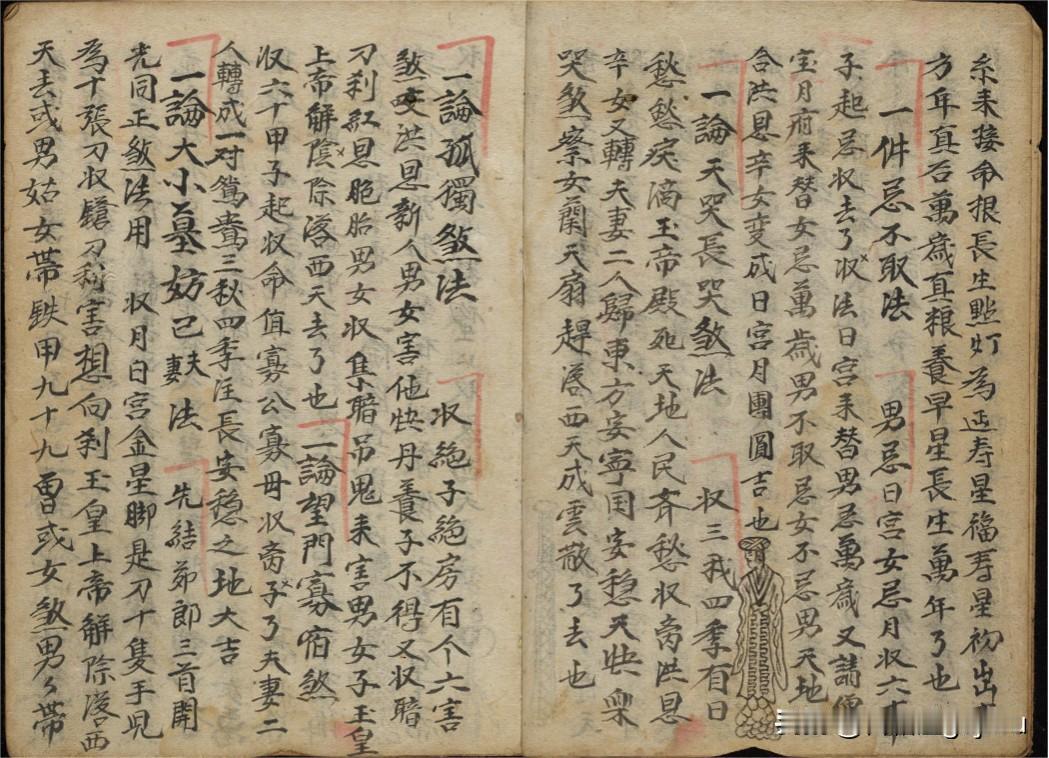 糸来接命根長生點灯為延寿星福寿星初出
方年真否萬歲真粮養早星長庄萬年了也
一件忌不取法 男忌日宮女忌月収六十
子起忌収去了収法日宮来替男忌萬歲又請
宝月府来替女忌萬歲男不取忌女不忌男天地
合洪恩辛女变成日宮月團圓吉也
一論天哭長哭煞法 収三我四季有日
愁愁疾滴玉帝殿死天地人民斉愁収裔洪恩
辛女又轉夫妻二人歸東方安寧国安穏天
哭煞寮女蘭天扇趕落西天成雲散了去也
一論孤獨煞法 収絶子絶房有个六害
煞咬洪恩新人男女害他快丹養子不得又収暗
刀刹紅恩胞胎男女収集暗吊鬼来害男女子玉皇
上帝解陰除落西天去了也 一論望門寡宿煞
収六十甲子起収命值寡公寡母収裔子了夫妻二
人轉成一对鴛鴦三秋四季注長安穏之地大吉
一論大小墓妨己夫妻法 先結茆郎三首開
光同正煞法用 収月日宮金星脚是刀十隻手児
為十張刀収鎗刀利害想向刹玉皇上帝解除落西
天去或男姑女帶鉄甲九十九曹或女煞男々帶